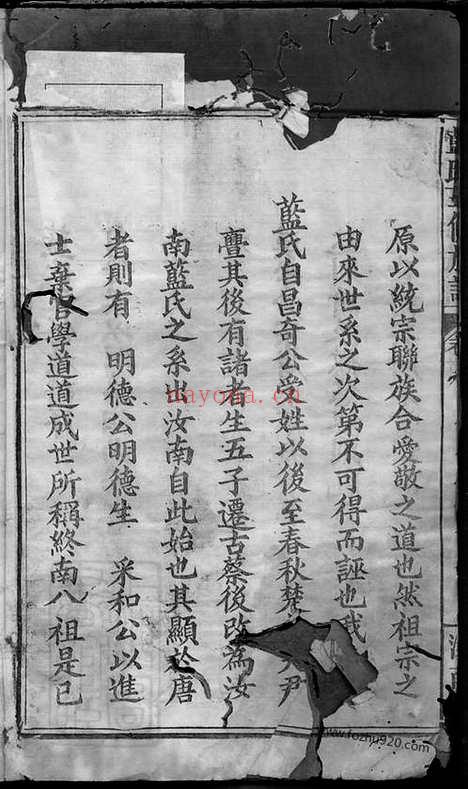 原以統宗聯族合愛敬之道也然祖宗之
由來世系之次第不可得而誣也我
藍氏自昌奇公受姓以後至春秋楚尹
亹其後有諸者生五子遷古蔡後改為汝
南藍氏之系出汝南自此始也其顯於唐
者則有 明德公明德生 采和公以進
士棄官學道道成世所稱終南八祖是已
nayona.cn
www.fozhu920.com